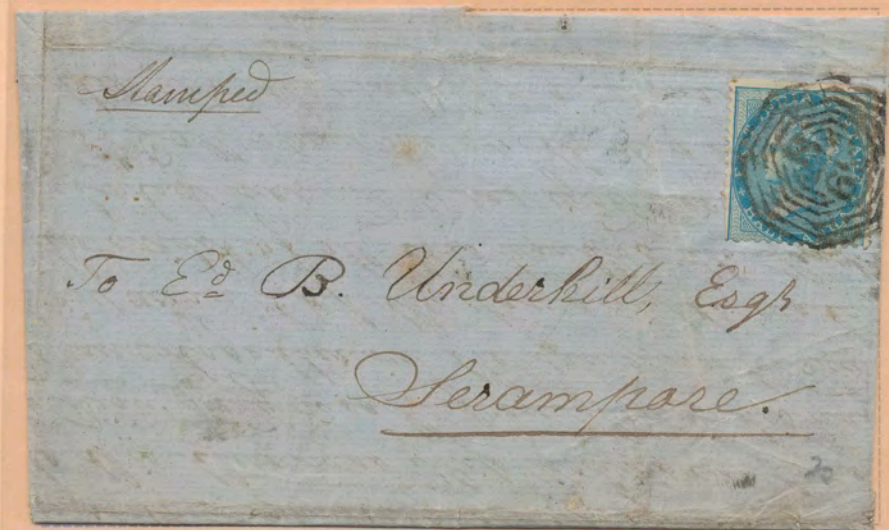 Stamped
To Ed B. Underhill, Esqr
Serampore.
20